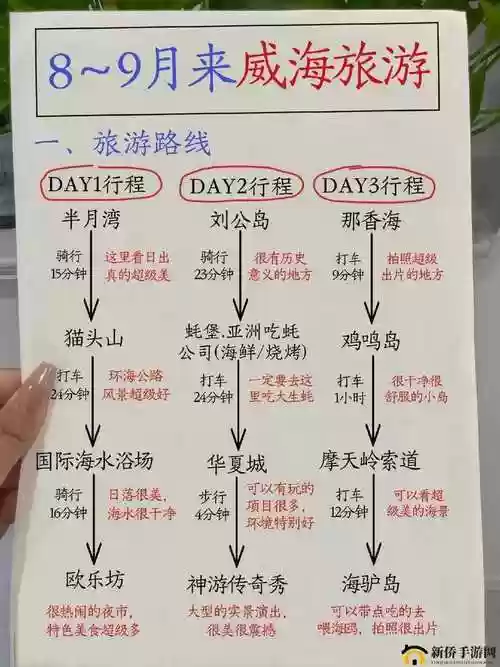 8~9月来威海旅游
一、旅游路线
DAY1行程
半月湾
骑行
15分钟
这里看日出
真的超级美
猫头山
打车
24分钟
环海公路
风景超级好
国际海水浴场
骑行
16分钟
日落很美,
海水很干净
欧乐坊
很热闹的夜市,
特色美食超级多
DAY2行程
刘公岛
骑行
23分钟
很有历史
意义的地方
蚝堡.亚洲吃蚝
公司(海鲜/烧烤)
打车
24分钟
一定要去这
里吃大生蚝
华夏城
步行
4分钟
可以有玩的
项目很多,
环境特别好
神游传奇秀
大型的实景演出,
很美很震撼
DAY3行程
那香海
打车
9分钟
拍照超级
出片的地方
鸡鸣岛
打车
1小时
很干净很
舒服的小岛
摩天岭索道
打车
12分钟
可以看超
级美的海景
海驴岛
可以带点吃的去
喂海鸥,拍照很出片
新侨手游网